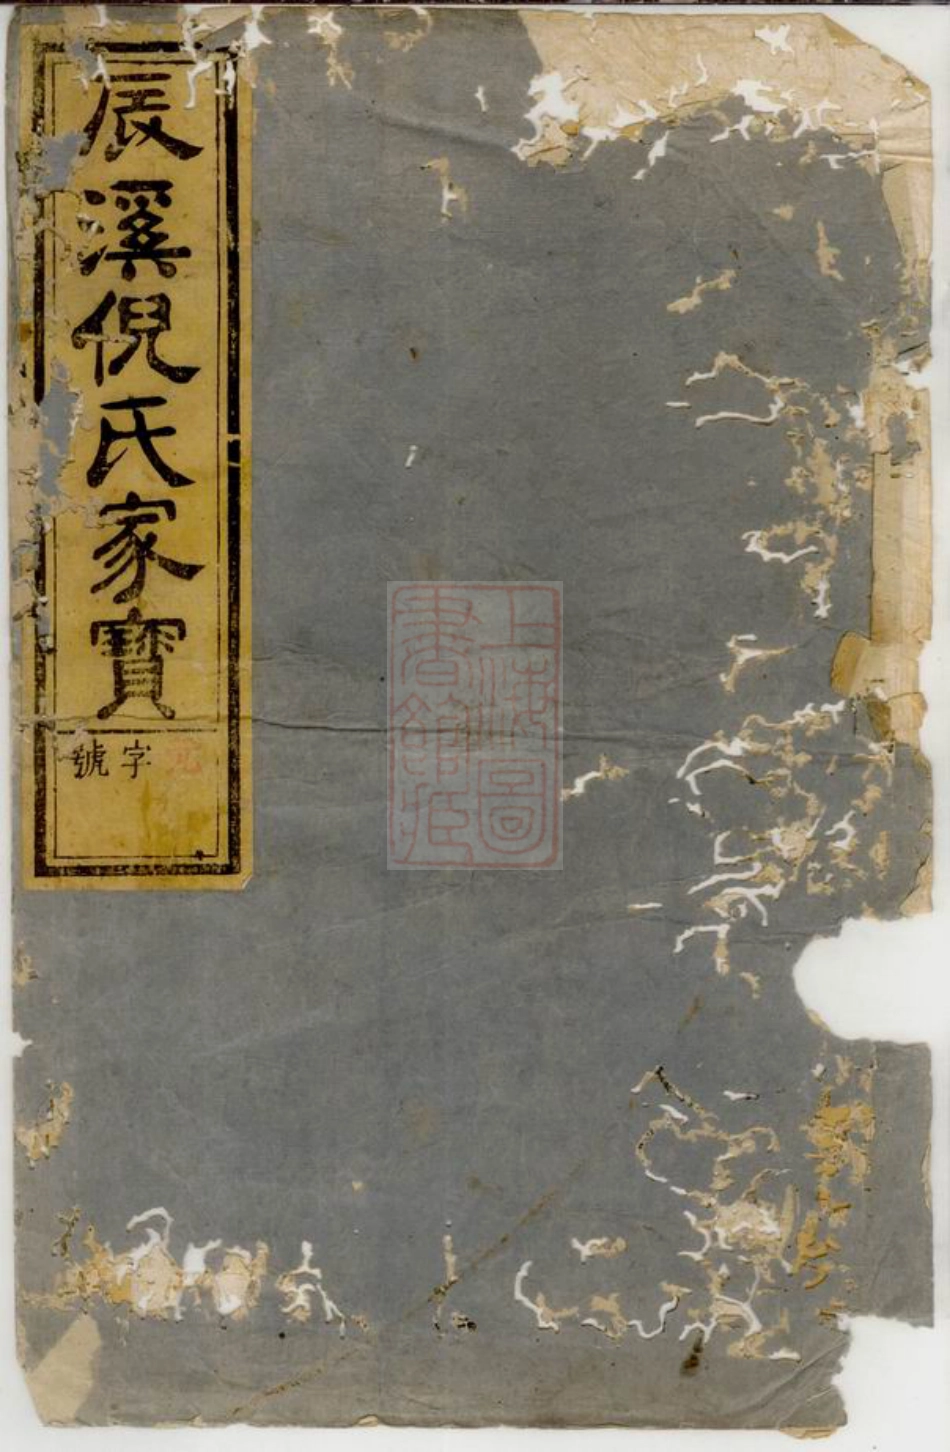 辰溪倪氏家寶
元字號
上海圖書館藏